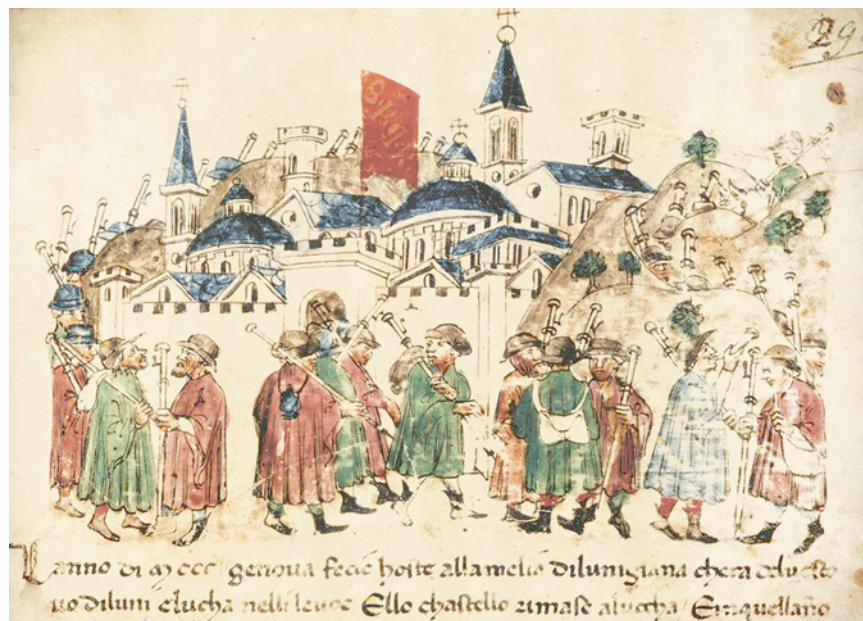 29
S.P.Q.R
Lanno di mccc genoua fecie hoste alla melia dilunigiana chera deluesco
uo diluni elucha nelli leuoe Ello chastello rimase aluccha Einquellano